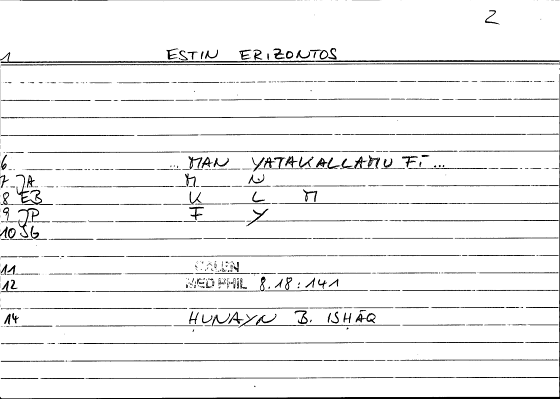 2
1 ESTIN ERIZONTOS
6 ... MAN YATAKALLAMU FĪ ...
7 JA M N
8 EB K L M
9 JP F Y
10 SG
11 GALEN
12 MED PHIL 8.18:141
14 ḤUNAYN B. ISḤĀQ